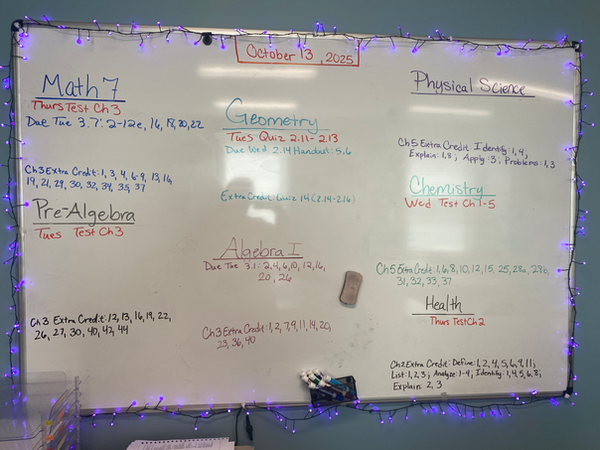 October 13, 2025
Math 7
Thurs Test Ch 3
Due Tue 3.7: 2-12e, 16, 18, 20, 22
Ch3 Extra Credit: 1, 3, 4, 6-9, 13, 16,
19, 21, 29, 30, 32, 34, 35, 37
Pre-Algebra
Tues Test Ch 3
Ch3 Extra Credit: 12, 13, 16, 19, 22,
26, 27, 30, 40, 42, 44
Geometry
Tues Quiz 2.11-2.13
Due Wed 2.14 Handout: 5, 6
Extra Credit: Quiz 14 (2.14-2.16)
Algebra I
Due Tue 3.1: 2, 4, 6, 10, 12, 16,
20, 26
Ch3 Extra Credit: 1, 2, 7, 9, 11, 14, 20,
23, 36, 40
Physical Science
Ch 5 Extra Credit: Identify: 1, 4;
Explain: 1, 8; Apply: 3; Problems: 1, 3
Chemistry
Wed Test Ch 1-5
Ch 5 Extra Credit: 1, 6, 8, 10, 12, 15, 25, 28a, 28b,
31, 32, 33, 37
Health
Thurs Test Ch 2
Ch 2 Extra Credit: Define: 1, 2, 4, 5, 6, 9, 11;
List: 1, 2, 3; Analyze: 1-4; Identify: 1, 4, 5, 6, 8;
Explain: 2, 3